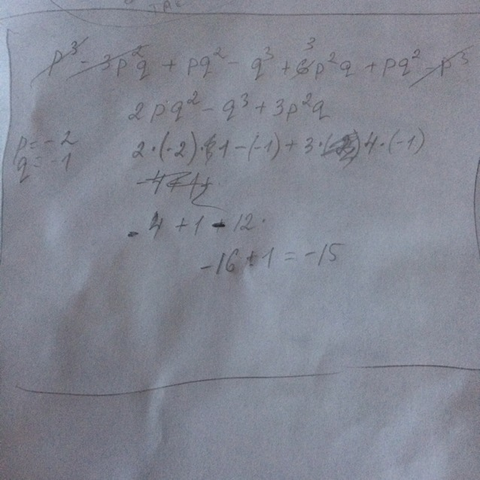 p³ - 3p²q + pq² - q³ + 6 3 p²q + pq² - p³
2pq² - q³ + 3p²q
p = -2
q = -1
2·(-2)·1-(-1)+3·4·(-1)
-4+1-12.
-16+1=-15